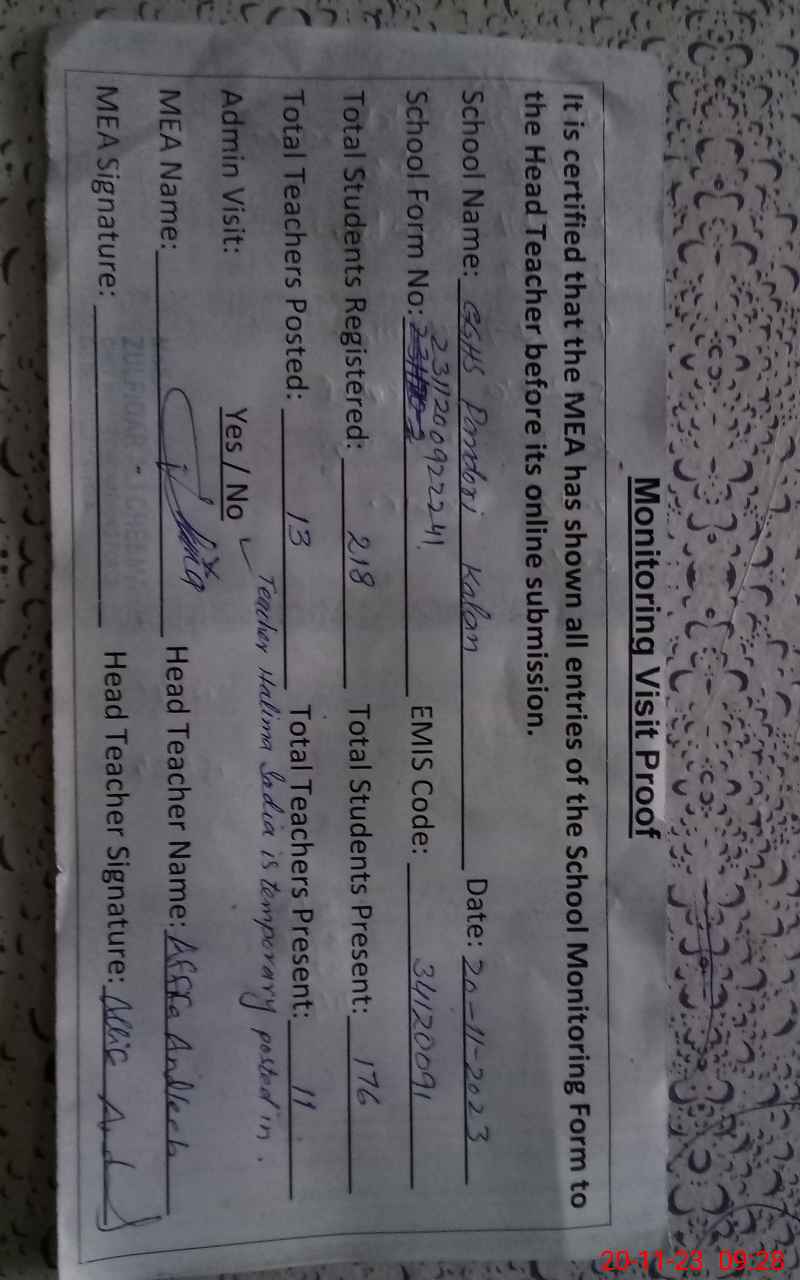 Monitoring Visit Proof
It is certified that the MEA has shown all entries of the School Monitoring Form to
the Head Teacher before its online submission.
School Name: GGHS Pandori Kalan Date: 20-11-2023
School Form No: 2311200922241 EMIS Code: 34120091
Total Students Registered: 218 Total Students Present: 176
Total Teachers Posted: 13 Total Teachers Present: 11
Teacher Halima Sadia is temporary posted in.
Admin Visit: Yes / No ✓
MEA Name: Head Teacher Name:
MEA Signature: Head Teacher Signature:
ZULFIQAR
20-11-23 09:28